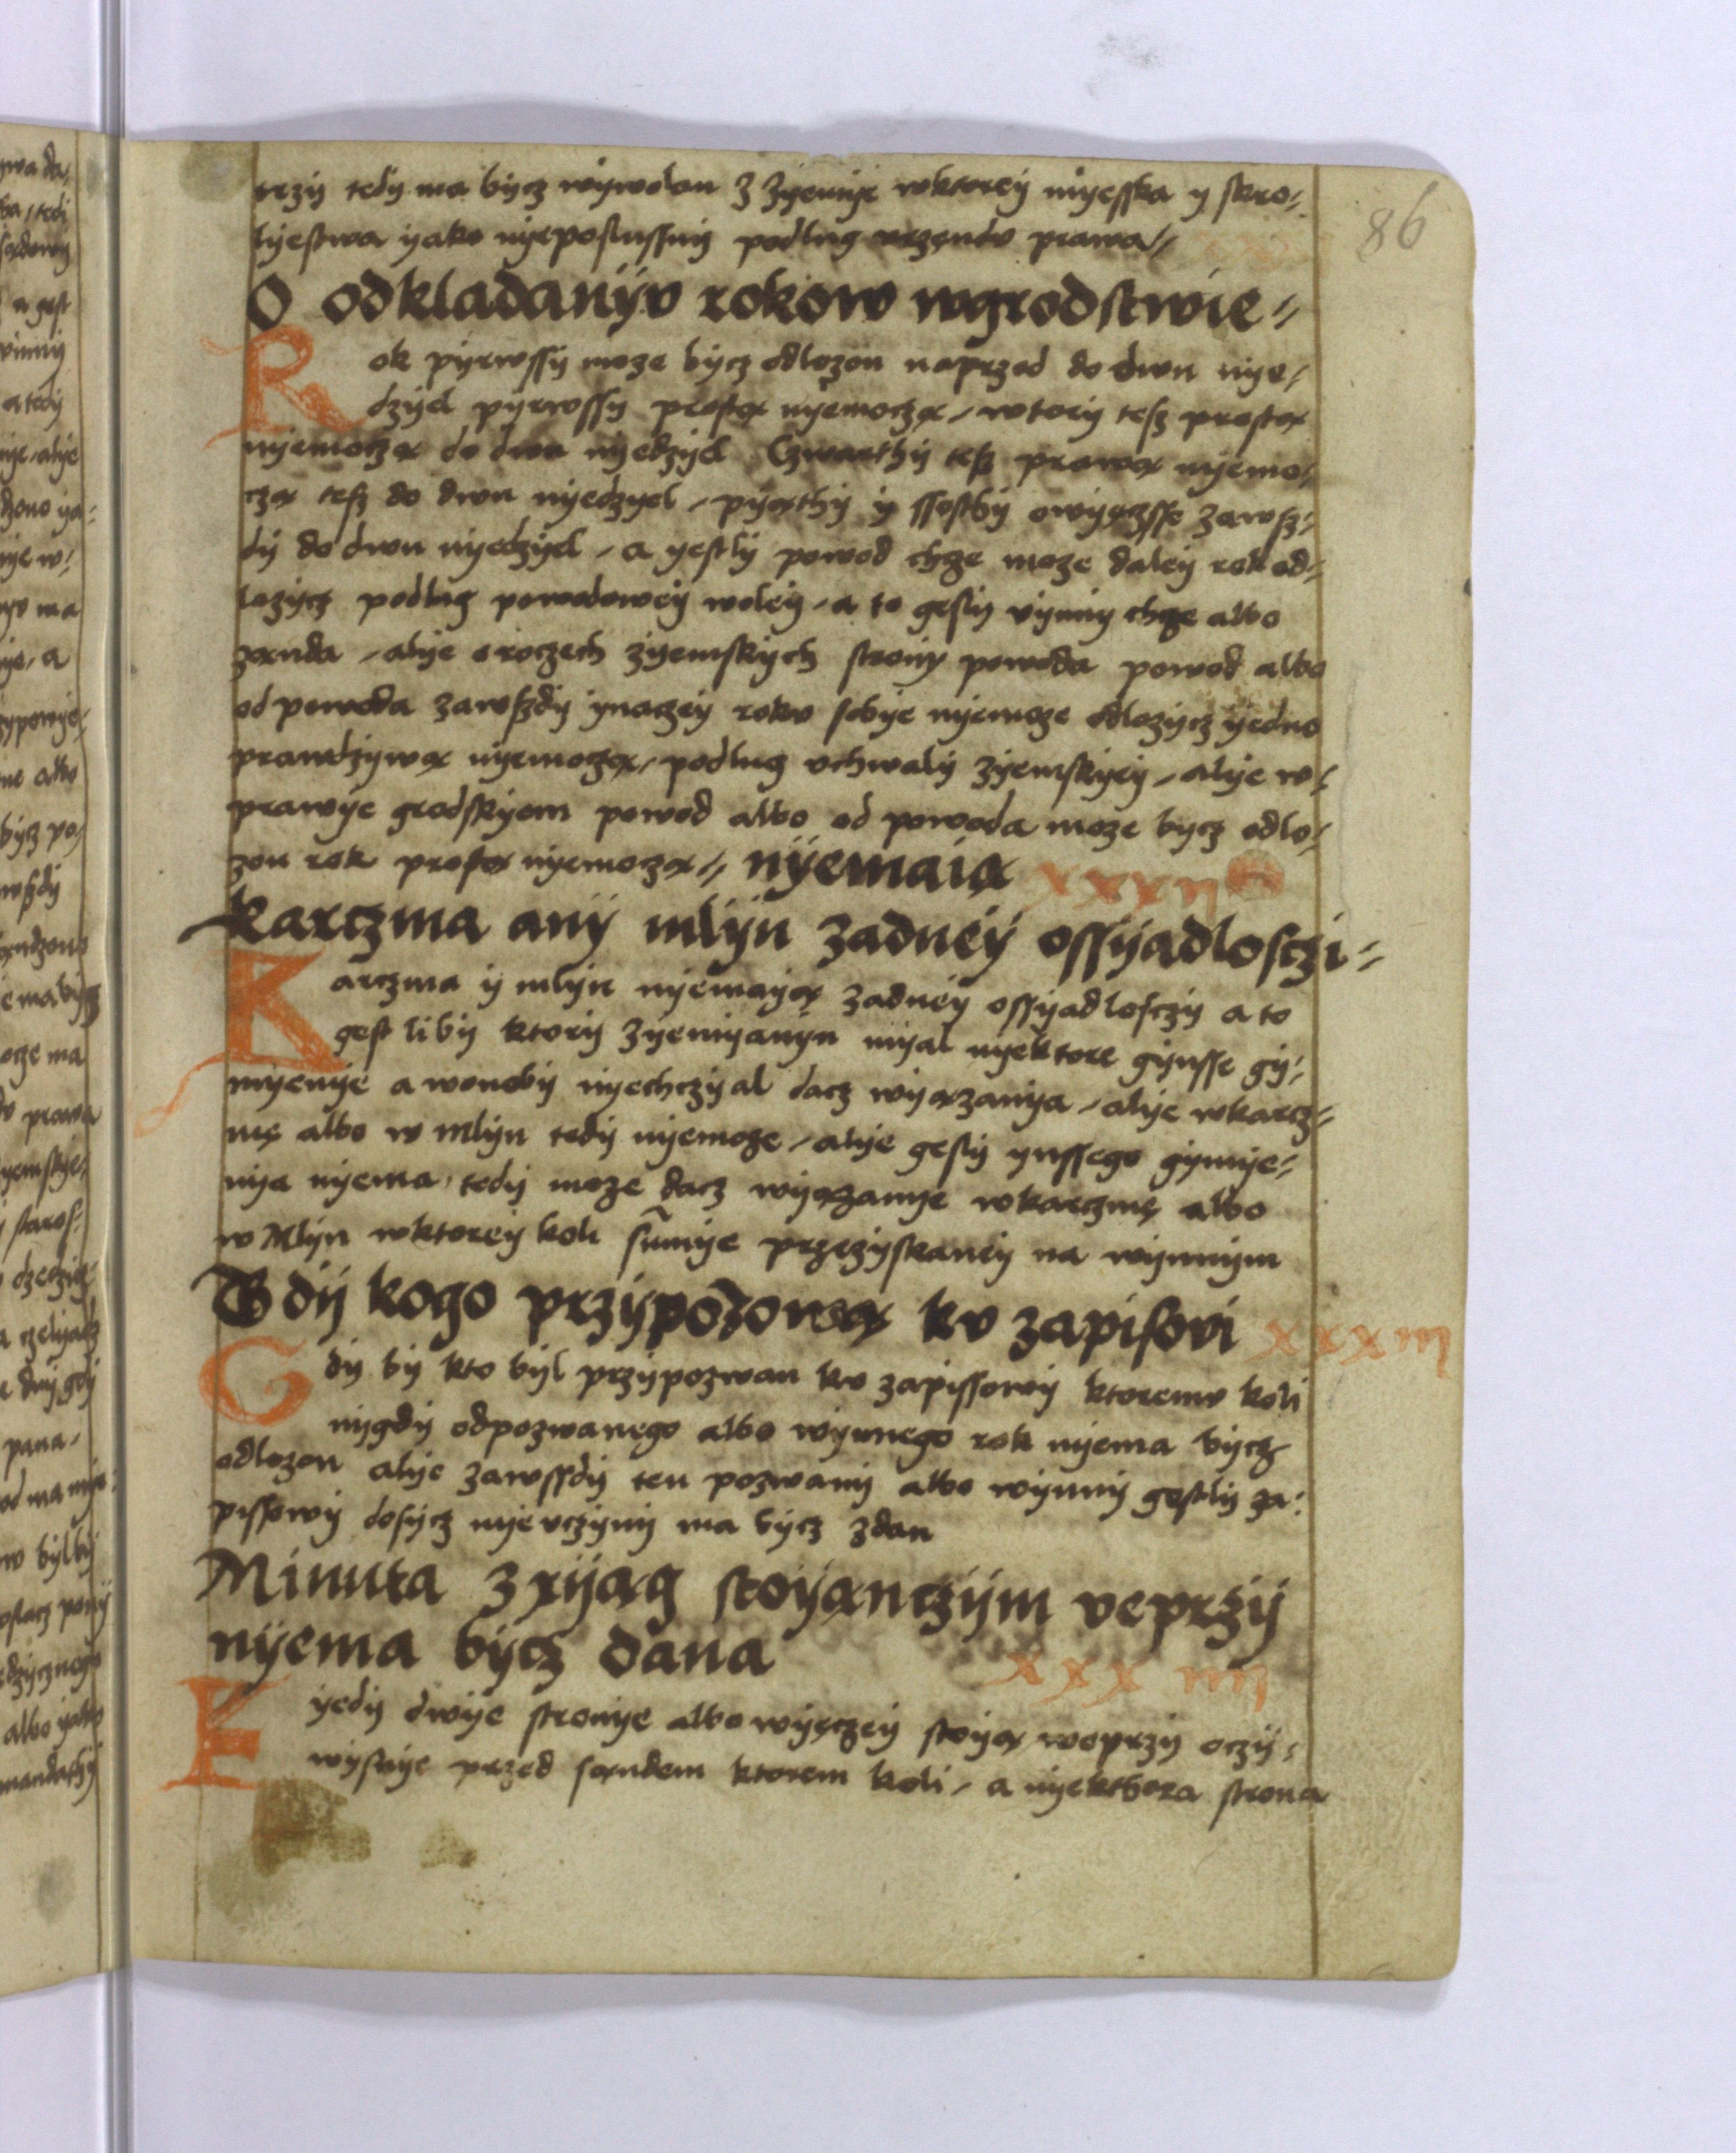 86
trzÿ tedÿ ma bÿcz wÿwolan z zÿemÿe wktoreÿ mÿesska y kro⸗
lÿestwa ÿako nÿeposlussnÿ podlug vrzendv prawa⸗
O odkladanÿv rokow wgrodstwie⸗
Rok pÿrwssÿ moze bÿcz odlozon naprzod do dwu nÿe⸗
dzÿel pÿrwssÿ prostą nÿemoczą / wtorÿ tesz prostą
nÿemoczą do dwu nÿedzÿel Czwarthÿ tesz prawą nÿemo⸗
czą tesz do dwu nÿedzyel / pÿąthÿ ÿ ssostÿ
dÿ do dwu nÿedzÿel / a yestlÿ powod chze moze daleÿ rok od⸗
lozÿcz podlug powodoweÿ woleÿ / a to gesliÿ vÿnnÿ chze albo
zanda / alÿe oroczech zÿemskÿch stronÿ powoda powod albo
od powoda zawszdÿ ÿnaczeÿ rokv sobÿe nÿemoze odlozÿcz ÿedno
prawdzÿwą nÿemoczą / podlug vchwalÿ zÿemskÿeÿ / alÿe w⸗
prawÿe grodskÿem powod albo od powoda moze bÿcz odlo⸗
zon rok prostą nÿemoczą⸗ nÿemaią xxxii
karczma anÿ mlÿn zadneÿ ossÿadlosczi⸗
Karczma ÿ mlÿn nÿemaÿą zadneÿ ossÿadlosczÿ a to
gest libÿ ktorÿ zÿemÿanÿn mÿal nÿektore gÿnsse gÿ⸗
mÿenÿe a wonobÿ nÿechczÿal dacz wÿązanÿa / alÿe wkarcz⸗
mę albo w mlÿn tedÿ nÿemoze / alÿe geslÿ ÿnssego gÿmÿe⸗
nÿa nÿema / tedÿ moze dacz wÿązanÿe wkarczmę albo
w Mlÿn wktoreÿ koli sūmÿe przezÿskaneÿ na wÿnnÿm
Gdÿ kogo przÿpozową kv zapisovi xxxiii
Gdÿ bÿ kto bÿl przÿpozwan kv zapissowÿ ktoremv koli
nÿgdÿ odpozwanego albo wÿnnego rok nÿema bÿcz
odlozon alÿe zawssdÿ ten pozwanÿ albo wÿnnÿ gestlÿ za⸗
pissowÿ dosÿcz nÿe vczÿnÿ ma bÿcz zdan
Minuta z xÿąg stoÿanczÿm veprzÿ
nÿema bÿcz dana xxxiiii
Kÿedÿ dwÿe stronÿe albo wÿęczeÿ stoÿą woprzÿ oczÿ⸗
wÿsnÿe przed sąndem ktorem koli / a nÿekthora strona